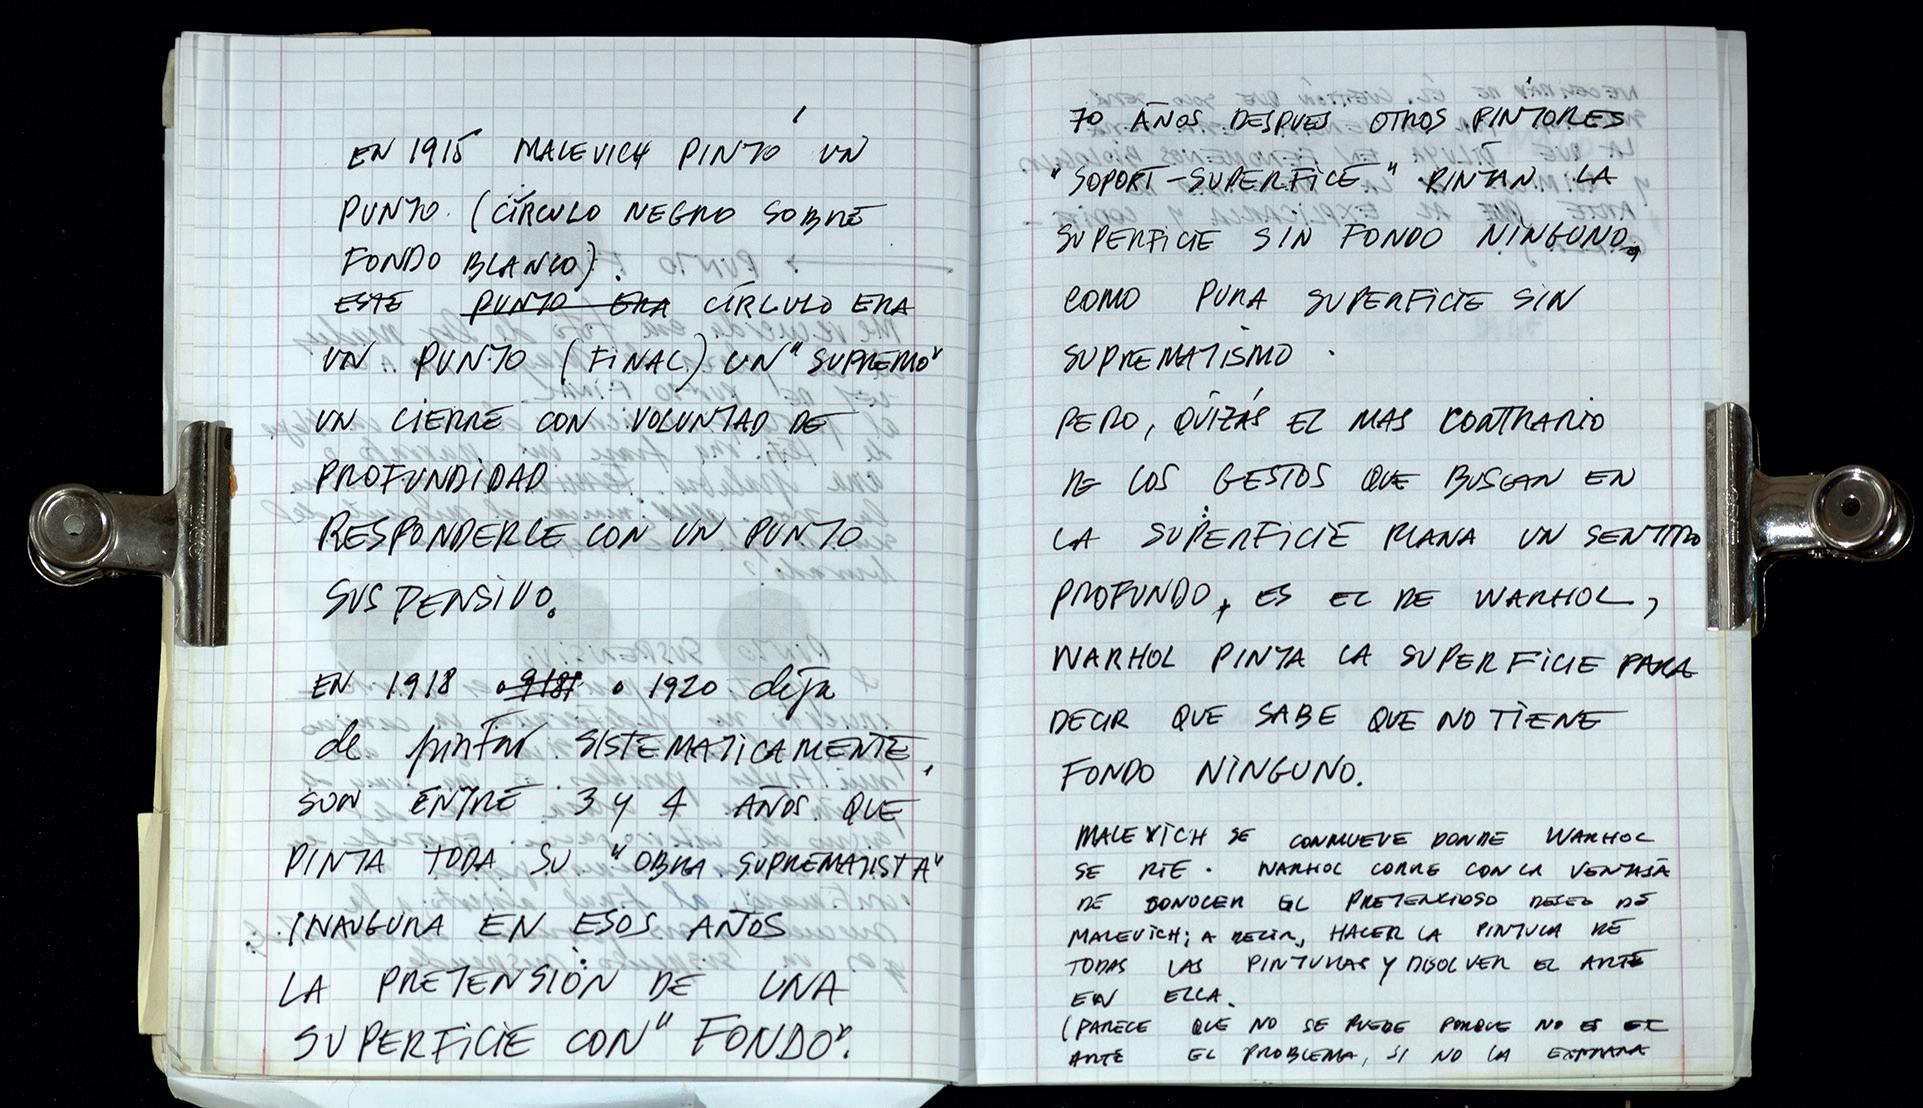 EN 1915 MALEVICH PINTÓ UN
PUNTO. (CÍRCULO NEGRO SOBRE
FONDO BLANCO).
ESTE PUNTO ERA CÍRCULO ERA
UN PUNTO (FINAL) UN "SUPREMO"
UN CIERRE CON VOLUNTAD DE
PROFUNDIDAD
RESPONDERLE CON UN PUNTO
SUSPENSIVO.
EN 1918 o 1920 deja
de pintar SISTEMATICAMENTE,
SON ENTRE 3 y 4 AÑOS QUE
PINTA TODA SU "OBRA SUPREMATISTA"
INAUGURA EN ESOS AÑOS
LA PRETENSIÓN DE UNA
SUPERFICIE CON "FONDO".
70 AÑOS DESPUES OTROS PINTORES
"SOPORT-SUPERFICE" PINTAN LA
SUPERFICIE SIN FONDO NINGUNO,
COMO PURA SUPERFICIE SIN
SUPREMATISMO.
PERO, QUIZÁS EL MAS CONTRARIO
DE LOS GESTOS QUE BUSCAN EN
LA SUPERFICIE PLANA UN SENTIDO
PROFUNDO, ES EL DE WARHOL,
WARHOL PINTA LA SUPERFICIE PARA
DECIR QUE SABE QUE NO TIENE
FONDO NINGUNO.
MALEVICH SE CONMUEVE DONDE WARHOL
SE RIE. WARHOL CORRE CON LA VENTAJA
DE CONOCER EL PRETENCIOSO DESEO DE
MALEVICH; A DECIR, HACER LA PINTURA DE
TODAS LAS PINTURAS Y DISOLVER EL ARTE
EN ELLA.
(PARECE QUE NO SE PUEDE PORQUE NO ES EL
ARTE EL PROBLEMA, SI NO LA EXTRAÑA